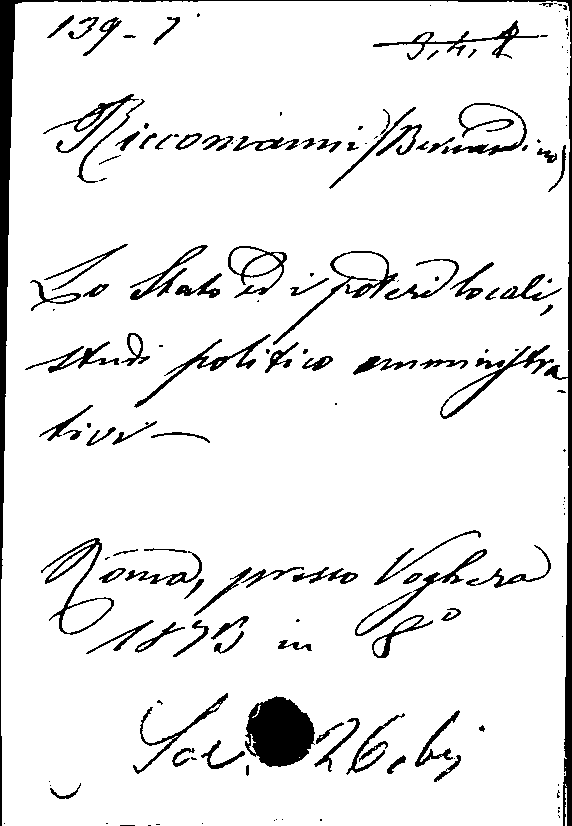 139-7
3,4,8
Riccomanni (Bernardino)
Lo Stato ed i poteri locali,
studi politico amministra-
tivi—
Roma, presso Voghera
1873 in 8°
26, bis